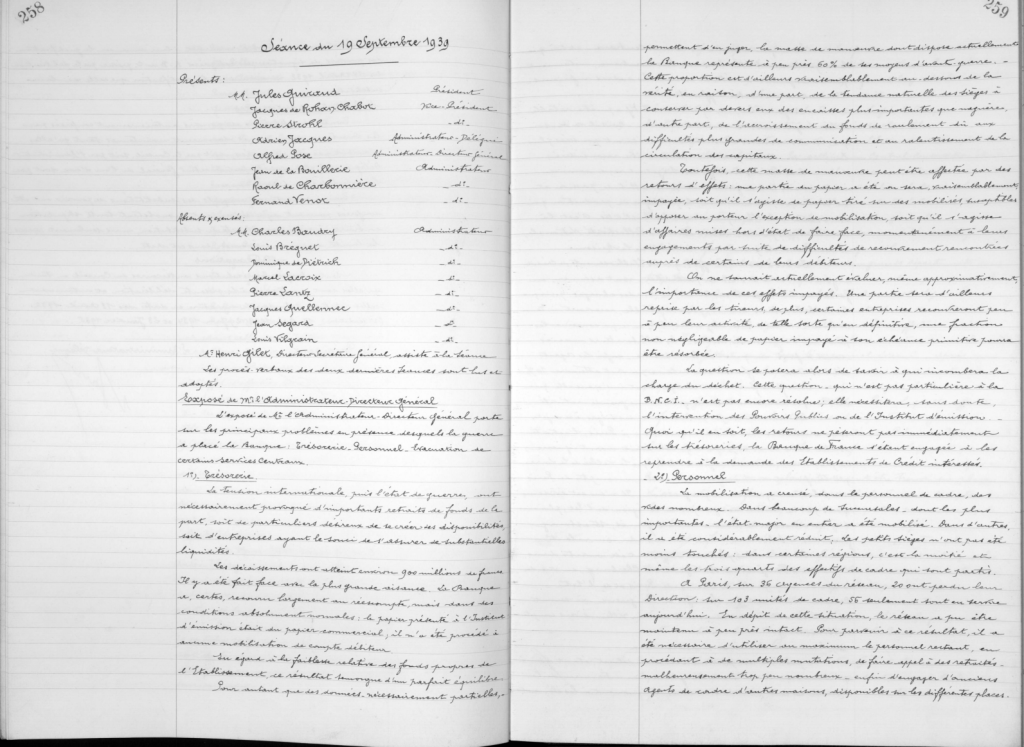 258
Séance du 19 Septembre 1939
Présents:
MM. Jules Guiraud Président
Jacques de Rohan Chabot Vice-Président
Pierre Strohl _ d° _
Adrien Jacques Administrateur-Délégué
Alfred Pose Administrateur-Directeur Général
Jean de la Bouillerie Administrateur
Raoul de Charbonnière _ d° _
Fernand Venot _ d° _
Absents excusés.
MM. Charles Baudry Administrateur
Louis Bréguet _ d° _
Dominique de Diétrich _ d° _
Marcel Lacroix _ d° _
Pierre Lantz _ d° _
Jacques Quellennec _ d° _
Jean Segard _ d° _
Louis Vilgrain _ d° _
Mr Henri Gilet, Directeur Secrétaire Général, assiste à la Séance
Les procès verbaux des deux dernières Séances sont lus et
adoptés.
Exposé de Mr l'Administrateur-Directeur Général
L'exposé de Mr l'Administrateur-Directeur Général porte
sur les principaux problèmes en présence desquels la guerre
a placé la Banque: Trésorerie. Personnel. Evacuation de
certains services Centraux.
1°). Trésorerie.
La tension internationale, puis l'état de guerre, ont
nécessairement provoqué d'importants retraits de fonds de la
part, soit de particuliers désireux de se créer des disponibilités,
soit d'entreprises ayant le souci de s'assurer de substantielles
liquidités.
Les décaissements ont atteint environ 900 millions de francs.
Il y a été fait face avec la plus grande aisance. La Banque
a, certes, recouru largement au réescompte, mais dans des
conditions absolument normales: le papier présenté à l'Institut
d'émission était du papier commercial; il n'a été procédé à
aucune mobilisation de compte débiteur.
Eu égard à la faiblesse relative des fonds propres de
l'Etablissement, ce résultat témoigne d'un parfait équilibre.
Pour autant que des données, nécessairement partielles,
259
permettent d'en juger, la masse de manœuvre dont dispose actuellement
la Banque représente à peu près 60% de ses moyens d'avant-guerre. _
Cette proportion est d'ailleurs vraisemblablement au-dessous de la
vérité, en raison, d'une part, de la tendance naturelle des Sièges à
conserver par devers eux des encaisses plus importantes que naguère,
d'autre part, de l'accroissement du fonds de roulement dû aux
difficultés plus grandes de communication et au ralentissement de la
circulation des capitaux.
Toutefois, cette masse de manœuvre peut être affectée par des
retours d'effets: une partie du papier a été ou sera, vraisemblablement,
impayée, soit qu'il s'agisse de papier tiré sur des mobilisés, susceptibles
d'opposer au porteur l'exception de mobilisation, soit qu'il s'agisse
d'affaires mises hors d'état de faire face, momentanément à leurs
engagements par suite de difficultés de recouvrement rencontrées
auprès de certains de leurs débiteurs.
On ne saurait actuellement évaluer, même approximativement,
l'importance de ces effets impayés. Une partie sera d'ailleurs
reprise par les tireurs, de plus, certaines entreprises recouvreront peu
à peu leur activité, de telle sorte qu'en définitive, une fraction
non négligeable de papier impayé à son échéance primitive pourra
être résorbée.
La question se posera alors de savoir à qui incombera la
charge du déchet. Cette question _ qui n'est pas particulière à la
B.N.C.I. _ n'est pas encore résolue; elle nécessitera, sans doute,
l'intervention des Pouvoirs Publics ou de l'Institut d'émission. _
Quoi qu'il en soit, les retours ne pèseront pas immédiatement
sur les trésoreries, la Banque de France s'étant engagée à les
reprendre à la demande des Etablissements de Crédit intéressés.
_ 2°) Personnel
La mobilisation a creusé, dans le personnel de cadre, des
vides nombreux. Dans beaucoup de Succursales _ dont les plus
importantes _ l'état major en entier a été mobilisé. Dans d'autres,
il a été considérablement réduit. Les petits Sièges n'ont pas été
moins touchés: dans certaines régions, c'est la moitié et
même les trois quarts des effectifs de cadre qui sont partis.
A Paris, sur 36 Agences du réseau, 20 ont perdu leur
Direction: sur 103 unités de cadre, 56 seulement sont en service
aujourd'hui. En dépit de cette situation, le réseau a pu être
maintenu à peu près intact. Pour parvenir à ce résultat, il a
été nécessaire d'utiliser au maximum le personnel restant, en
procédant à de multiples mutations, de faire appel à des retraités _
malheureusement trop peu nombreux _ enfin d'engager d'anciens
agents de cadre d'autres maisons, disponibles sur les différentes places.